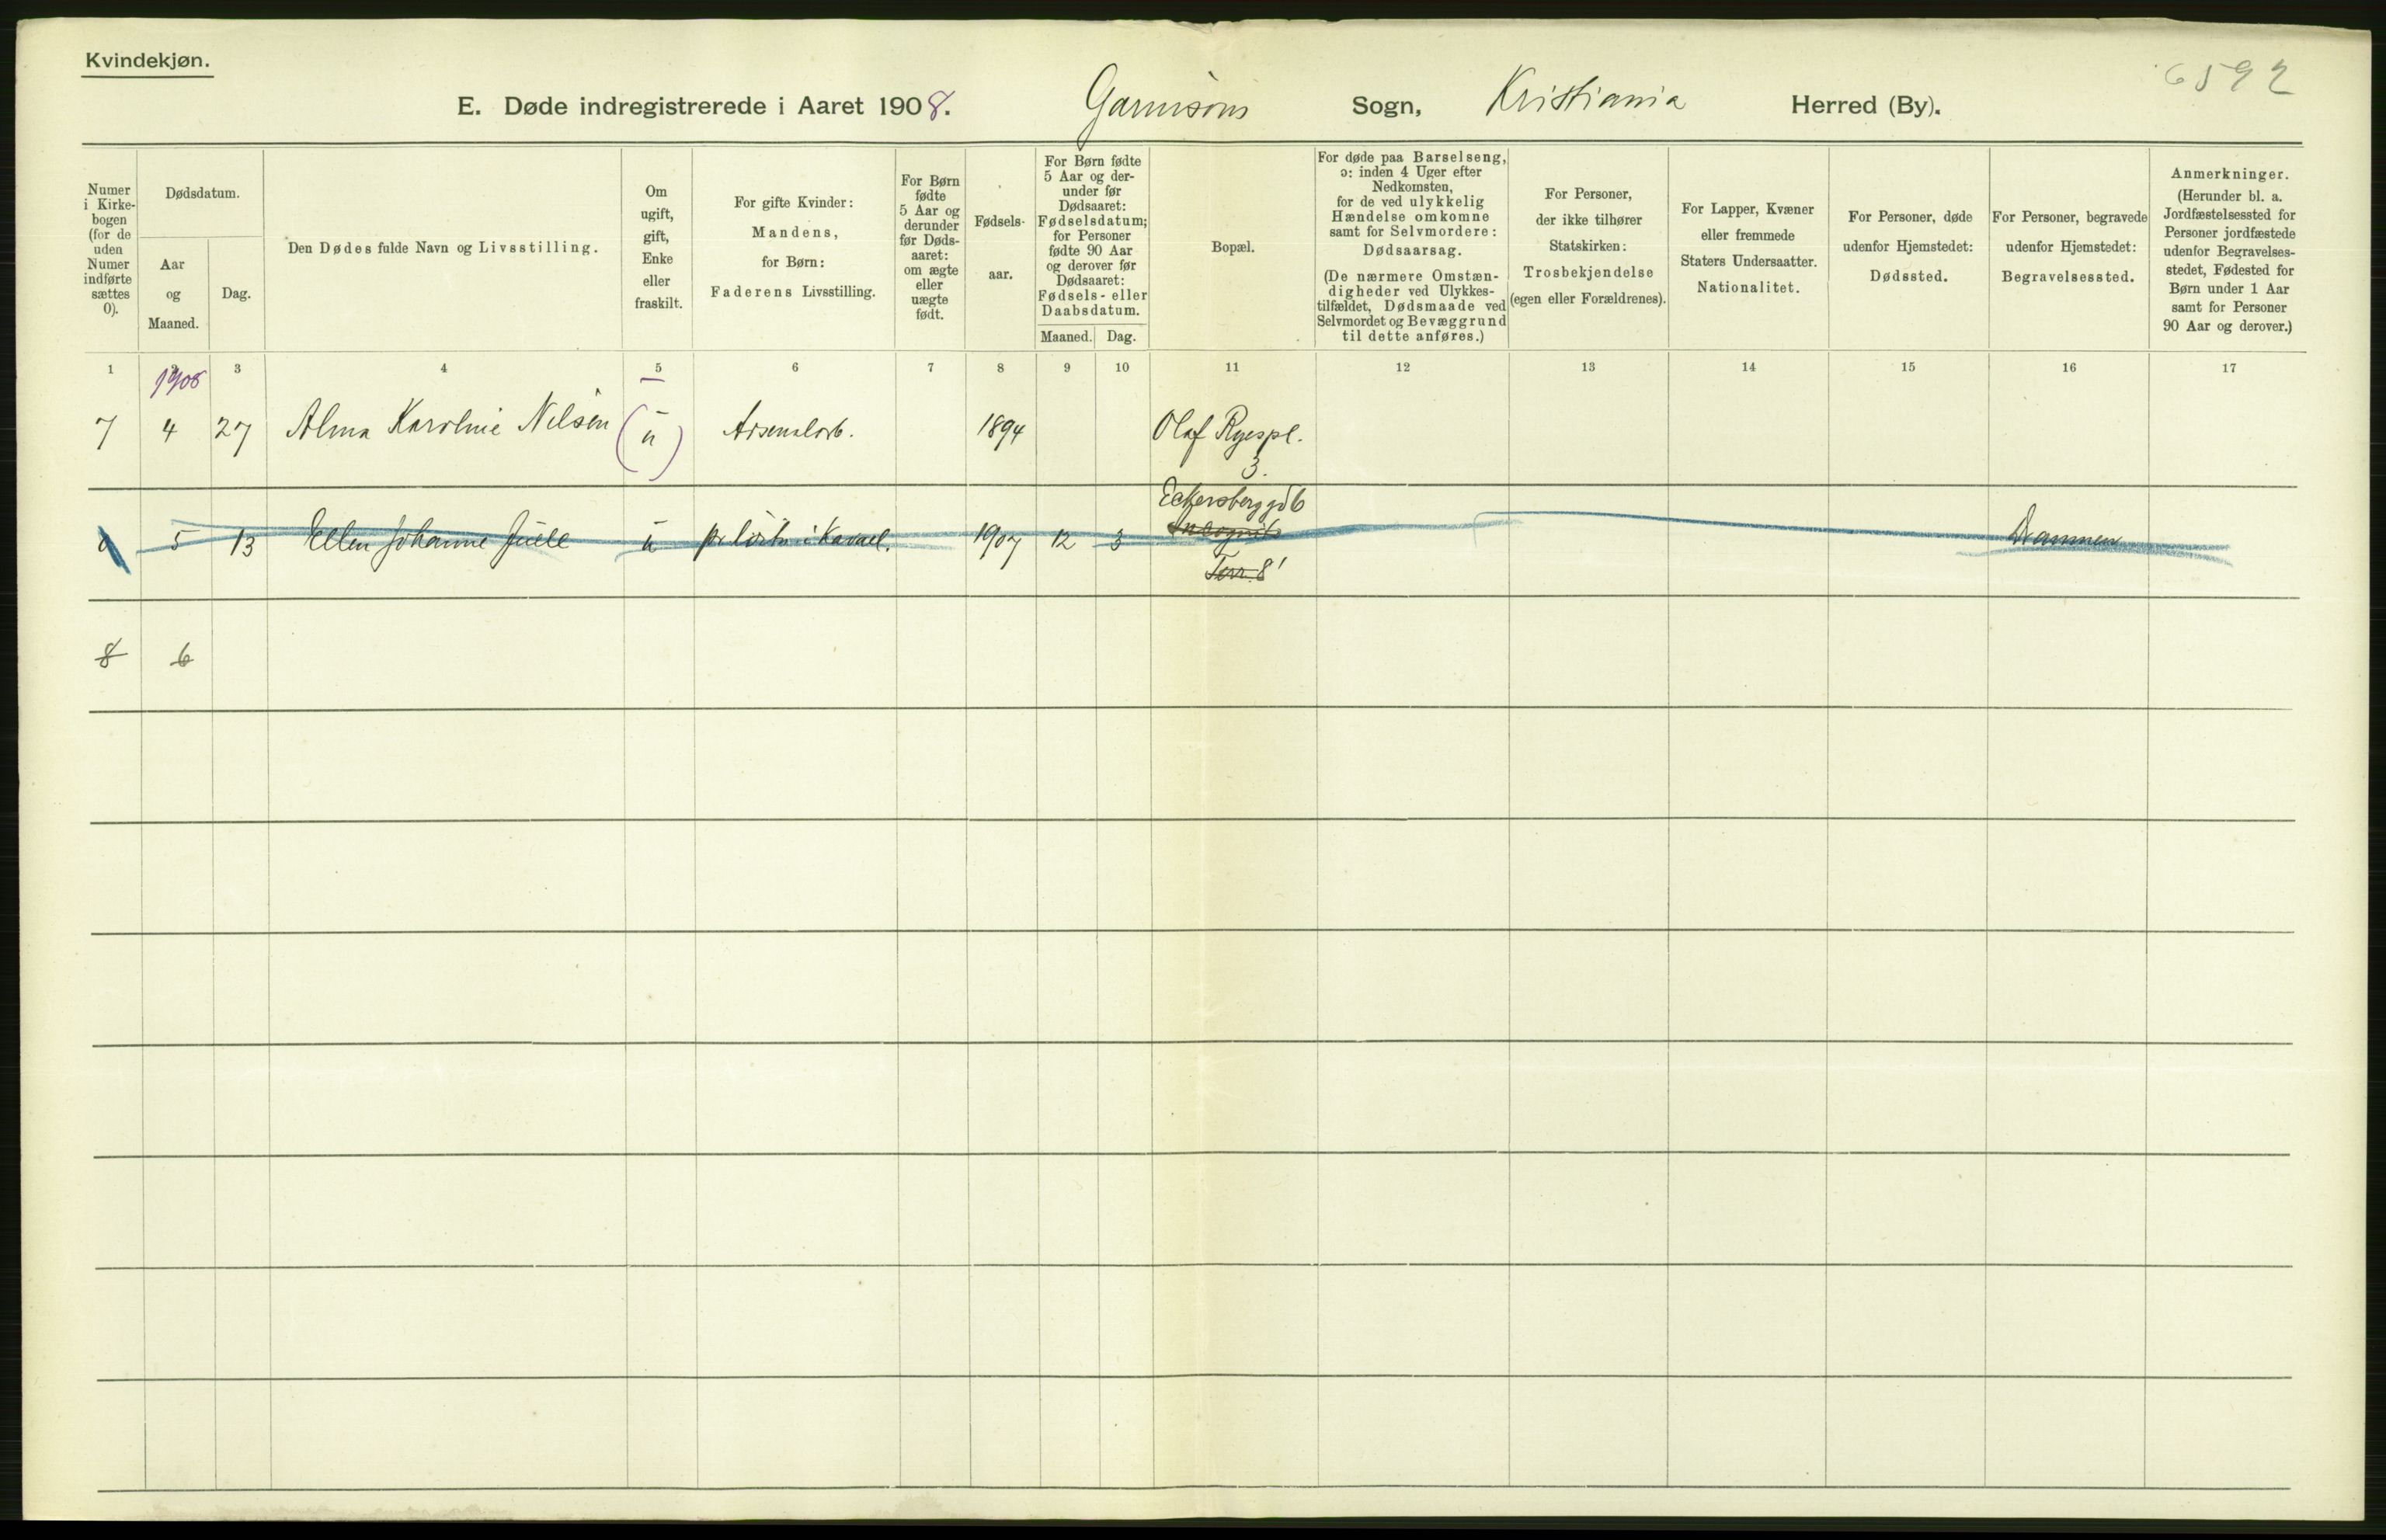 Kvindekjøn.
6592
E. Døde indregistrerede i Aaret 1908. Garnisons Sogn, Kristiania Herred (By).
Numer i Kirke-bogen (for de uden Numer indførte sættes 0).
Dødsdatum.
Aar og Maaned.
Dag.
Den Dødes fulde Navn og Livsstilling.
Om ugift, gift, Enke eller fraskilt.
For gifte Kvinder: Mandens, for Børn: Faderens Livsstilling.
For Børn fødte 5 Aar og derunder før Døds-aaret: om ægte eller uægte født.
Fødsels-aar.
For Børn fødte 5 Aar og der-under før Dødsaaret: Fødselsdatum; for Personer fødte 90 Aar og derover før Dødsaaret: Fødsels- eller Daabsdatum.
Maaned. Dag.
Bopæl.
For døde paa Barselseng, ɔ: inden 4 Uger efter Nedkomsten, for de ved ulykkelig Hændelse omkomne samt for Selvmordere: Dødsaarsag.
(De nærmere Omstæn-digheder ved Ulykkes-tilfældet, Dødsmaade ved Selvmordet og Bevæggrund til dette anføres.)
For Personer, der ikke tilhører Statskirken: Trosbekjendelse (egen eller Forældrenes).
For Lapper, Kvæner eller fremmede Staters Undersaatter. Nationalitet.
For Personer, døde udenfor Hjemstedet: Dødssted.
For Personer, begravede udenfor Hjemstedet: Begravelsessted.
Anmerkninger. (Herunder bl. a. Jordfæstelsessted for Personer jordfæstede udenfor Begravelses-stedet, Fødested for Børn under 1 Aar samt for Personer 90 Aar og derover.)
1 2 3 4 5 6 7 8 9 10 11 12 13 14 15 16 17
1908
7 4 27 Alma Karoline Nilsen (u) Arsenalarb. 1894 Olaf Ryespl. 3.
0 5 13 Ellen Johanne Juell u i Kavael. 1907 12 3 Eckersberggd 6 Incognito Terr. 8 Drammen
8 6